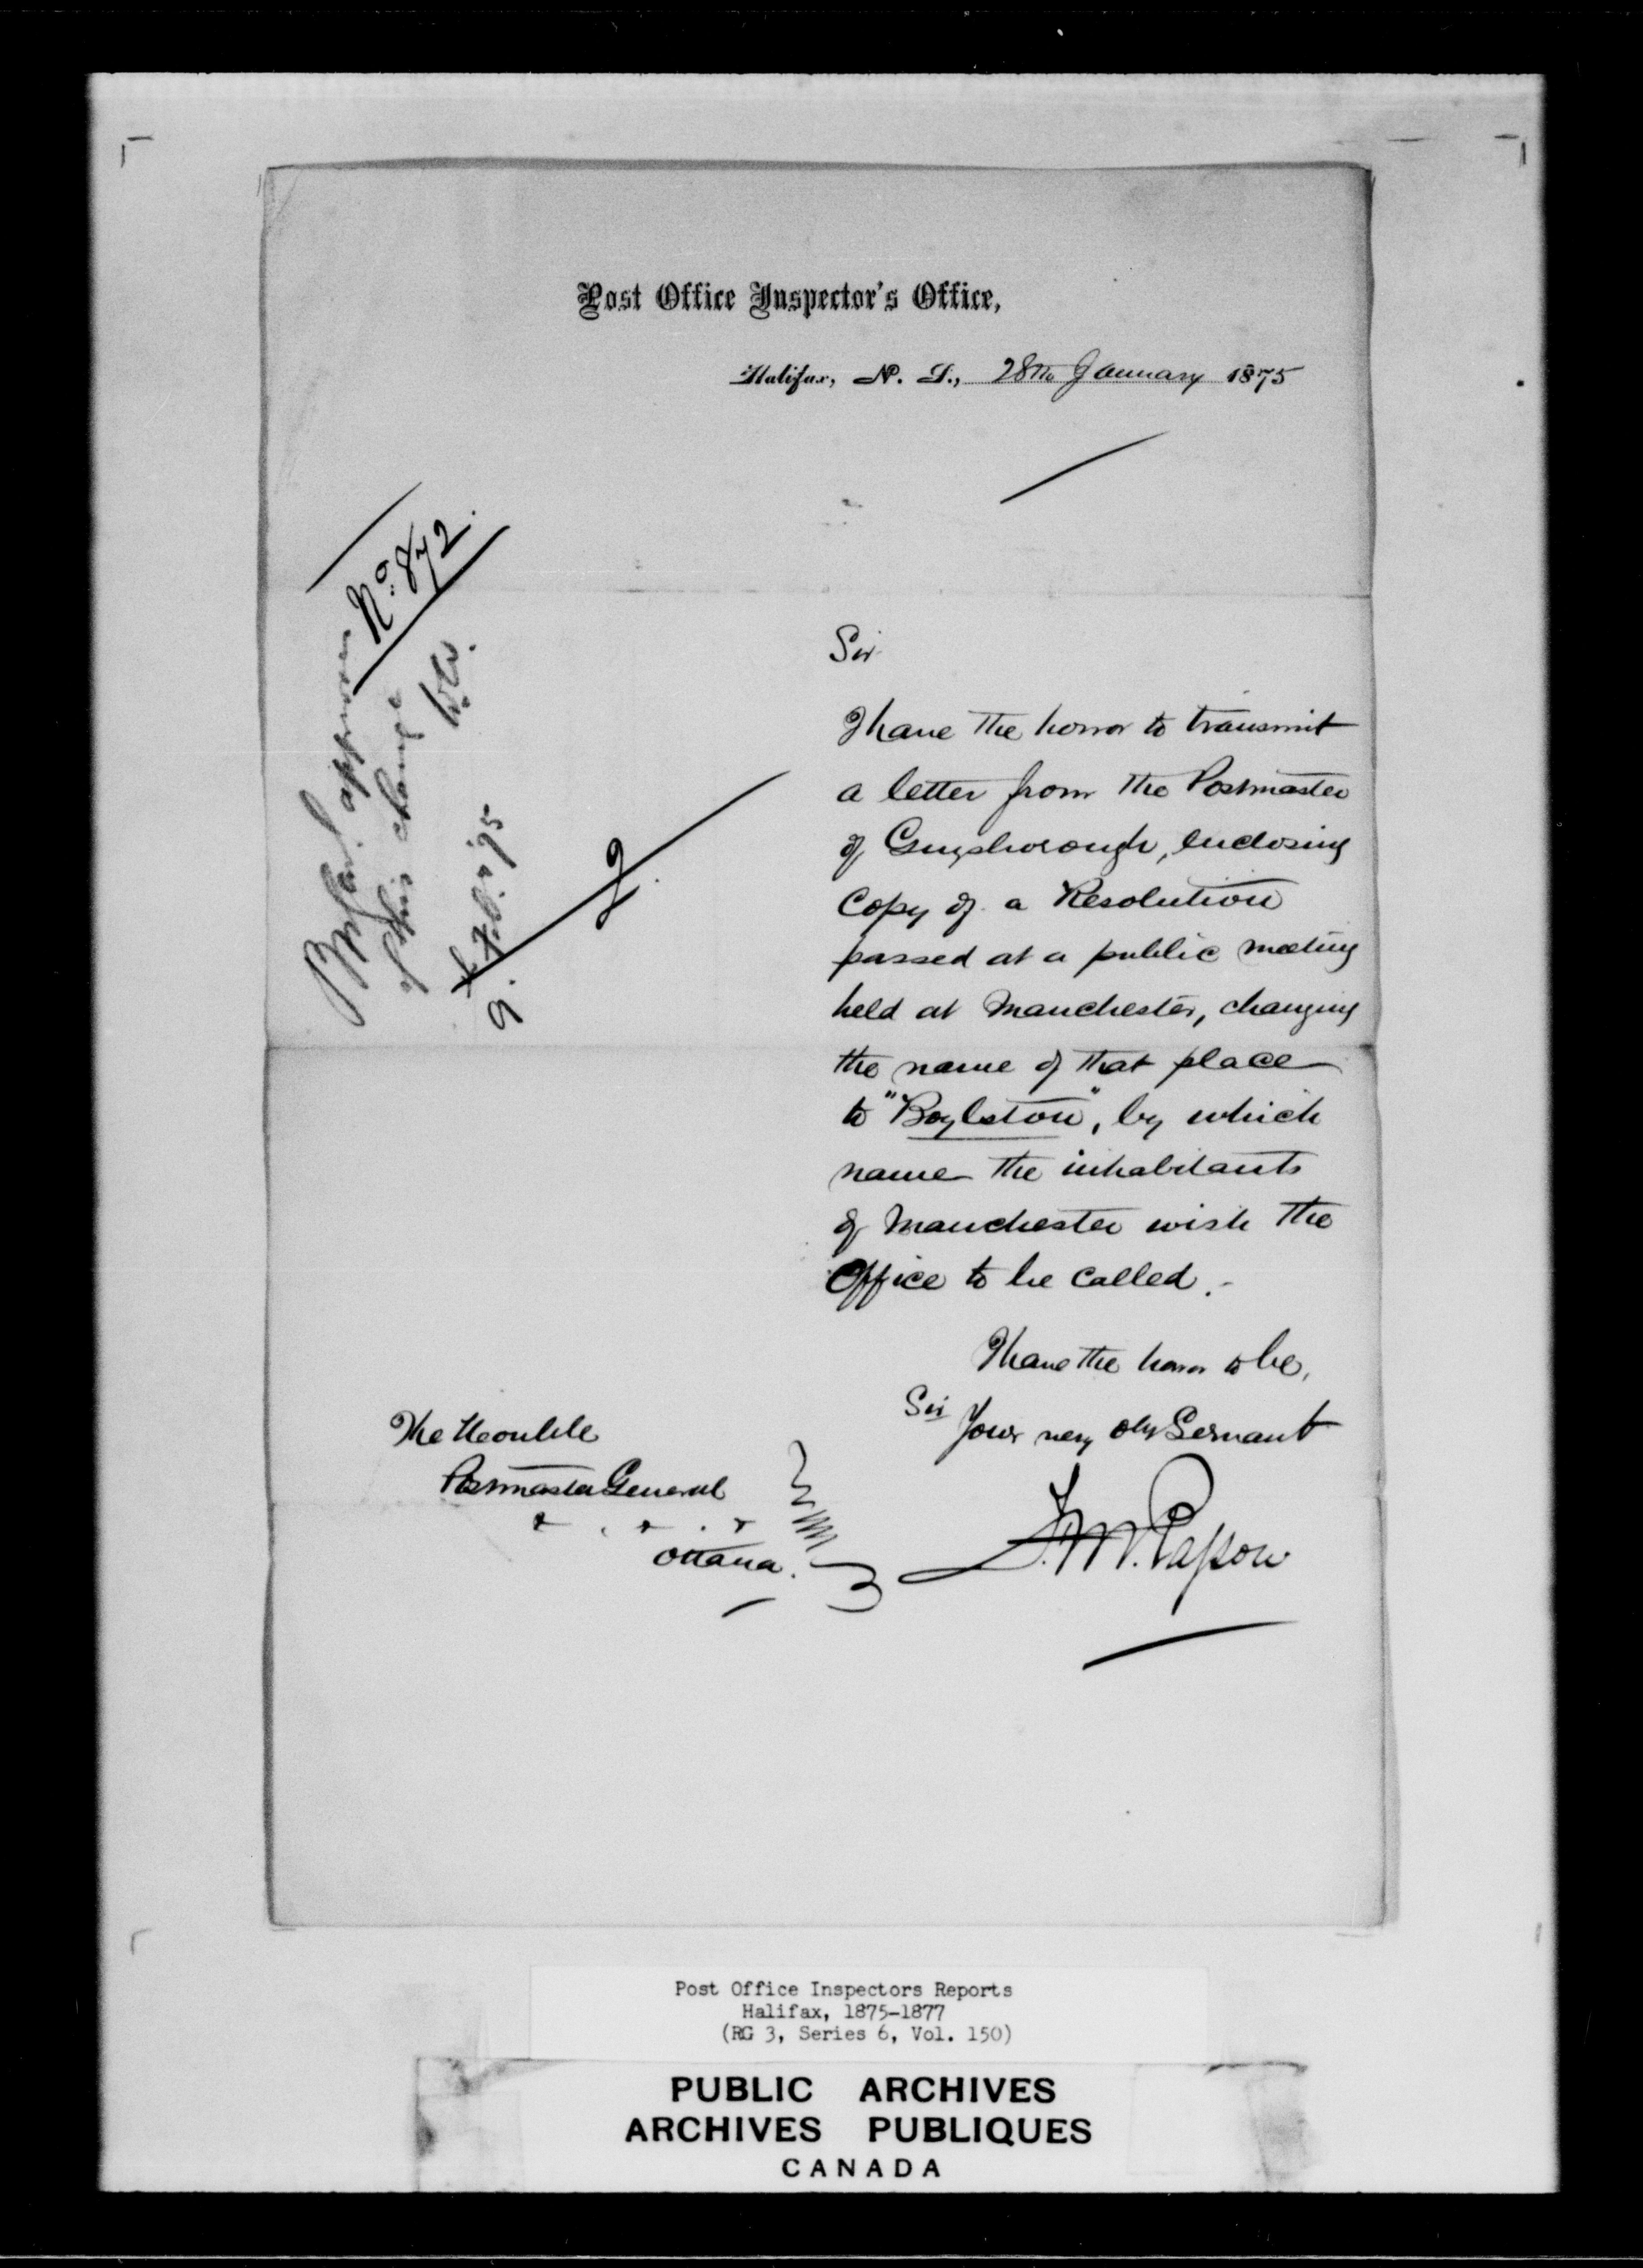 Post Office Inspector's Office,
Halifax, N. S., 28th January 1875
No. 872.
approves
of this change
9. Feb. '75
Sir
I have the honor to transmit
a letter from the Postmaster
of Guysborough, enclosing
Copy of a Resolution
passed at a public meeting
held at Manchester, changing
the name of that place
to "Boylston", by which
name the inhabitants
of Manchester wish the
Office to be called.-
I have the honor to be,
Sir
Your very obt Servant
The Honble
Postmaster General
Ottawa.
F. M. Passow
Post Office Inspectors Reports
Halifax, 1875-1877
(RG 3, Series 6, Vol. 150)
PUBLIC ARCHIVES
ARCHIVES PUBLIQUES
CANADA